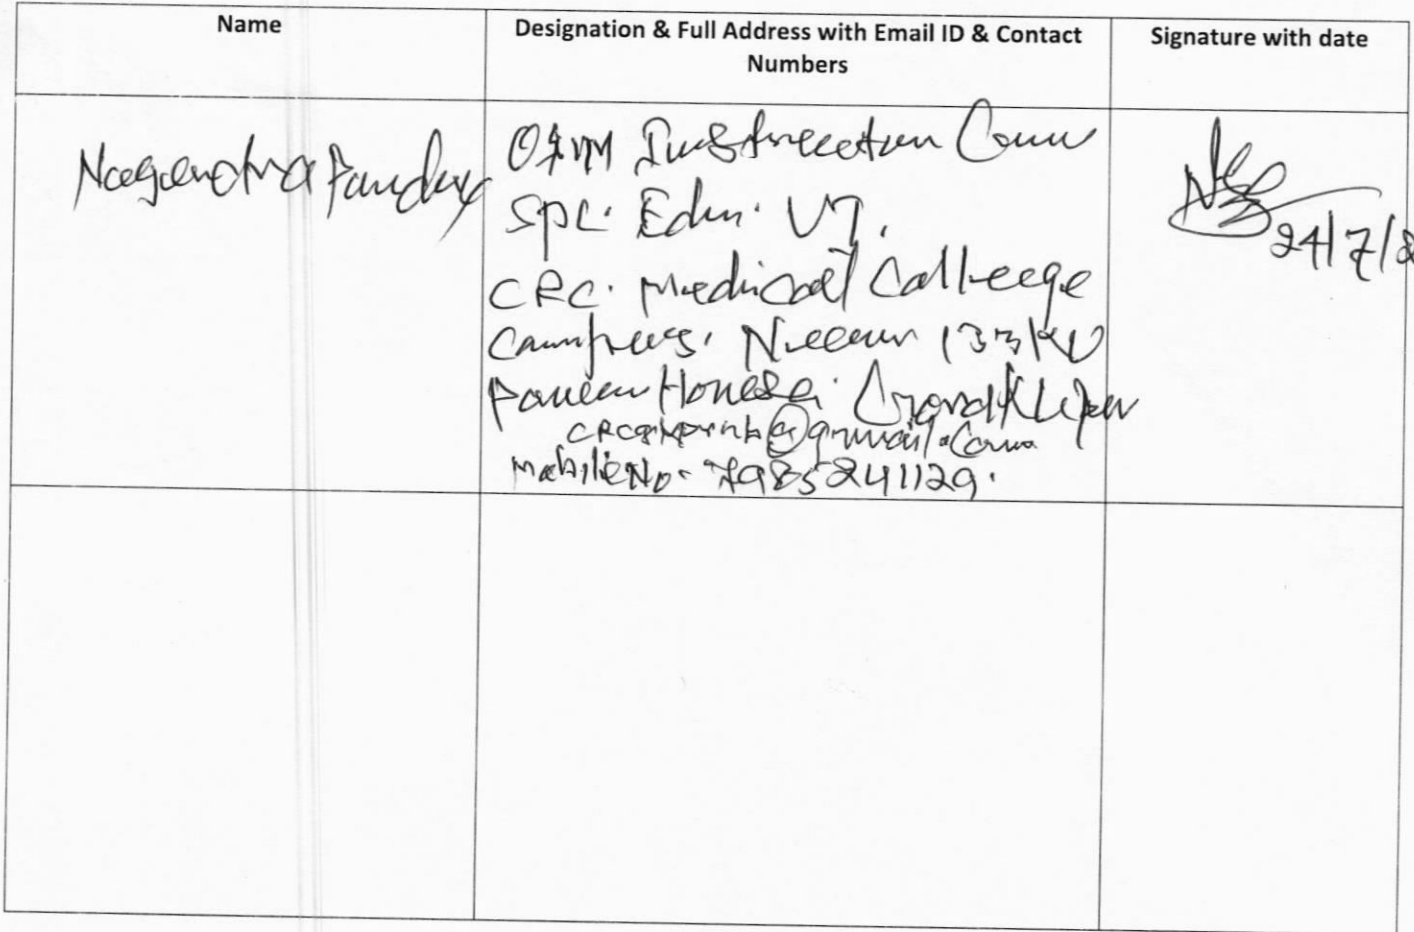 Name
Designation & Full Address with Email ID & Contact
Numbers
Signature with date
Nagendra Pandey
O&M Instructor Cum
Spl. Edn. VI.
CRC. Medical College
Campus. Near 133 KV
Power House. Gorakhpur
@gmail.com
Mobile No- 7985241129.
24/7/2